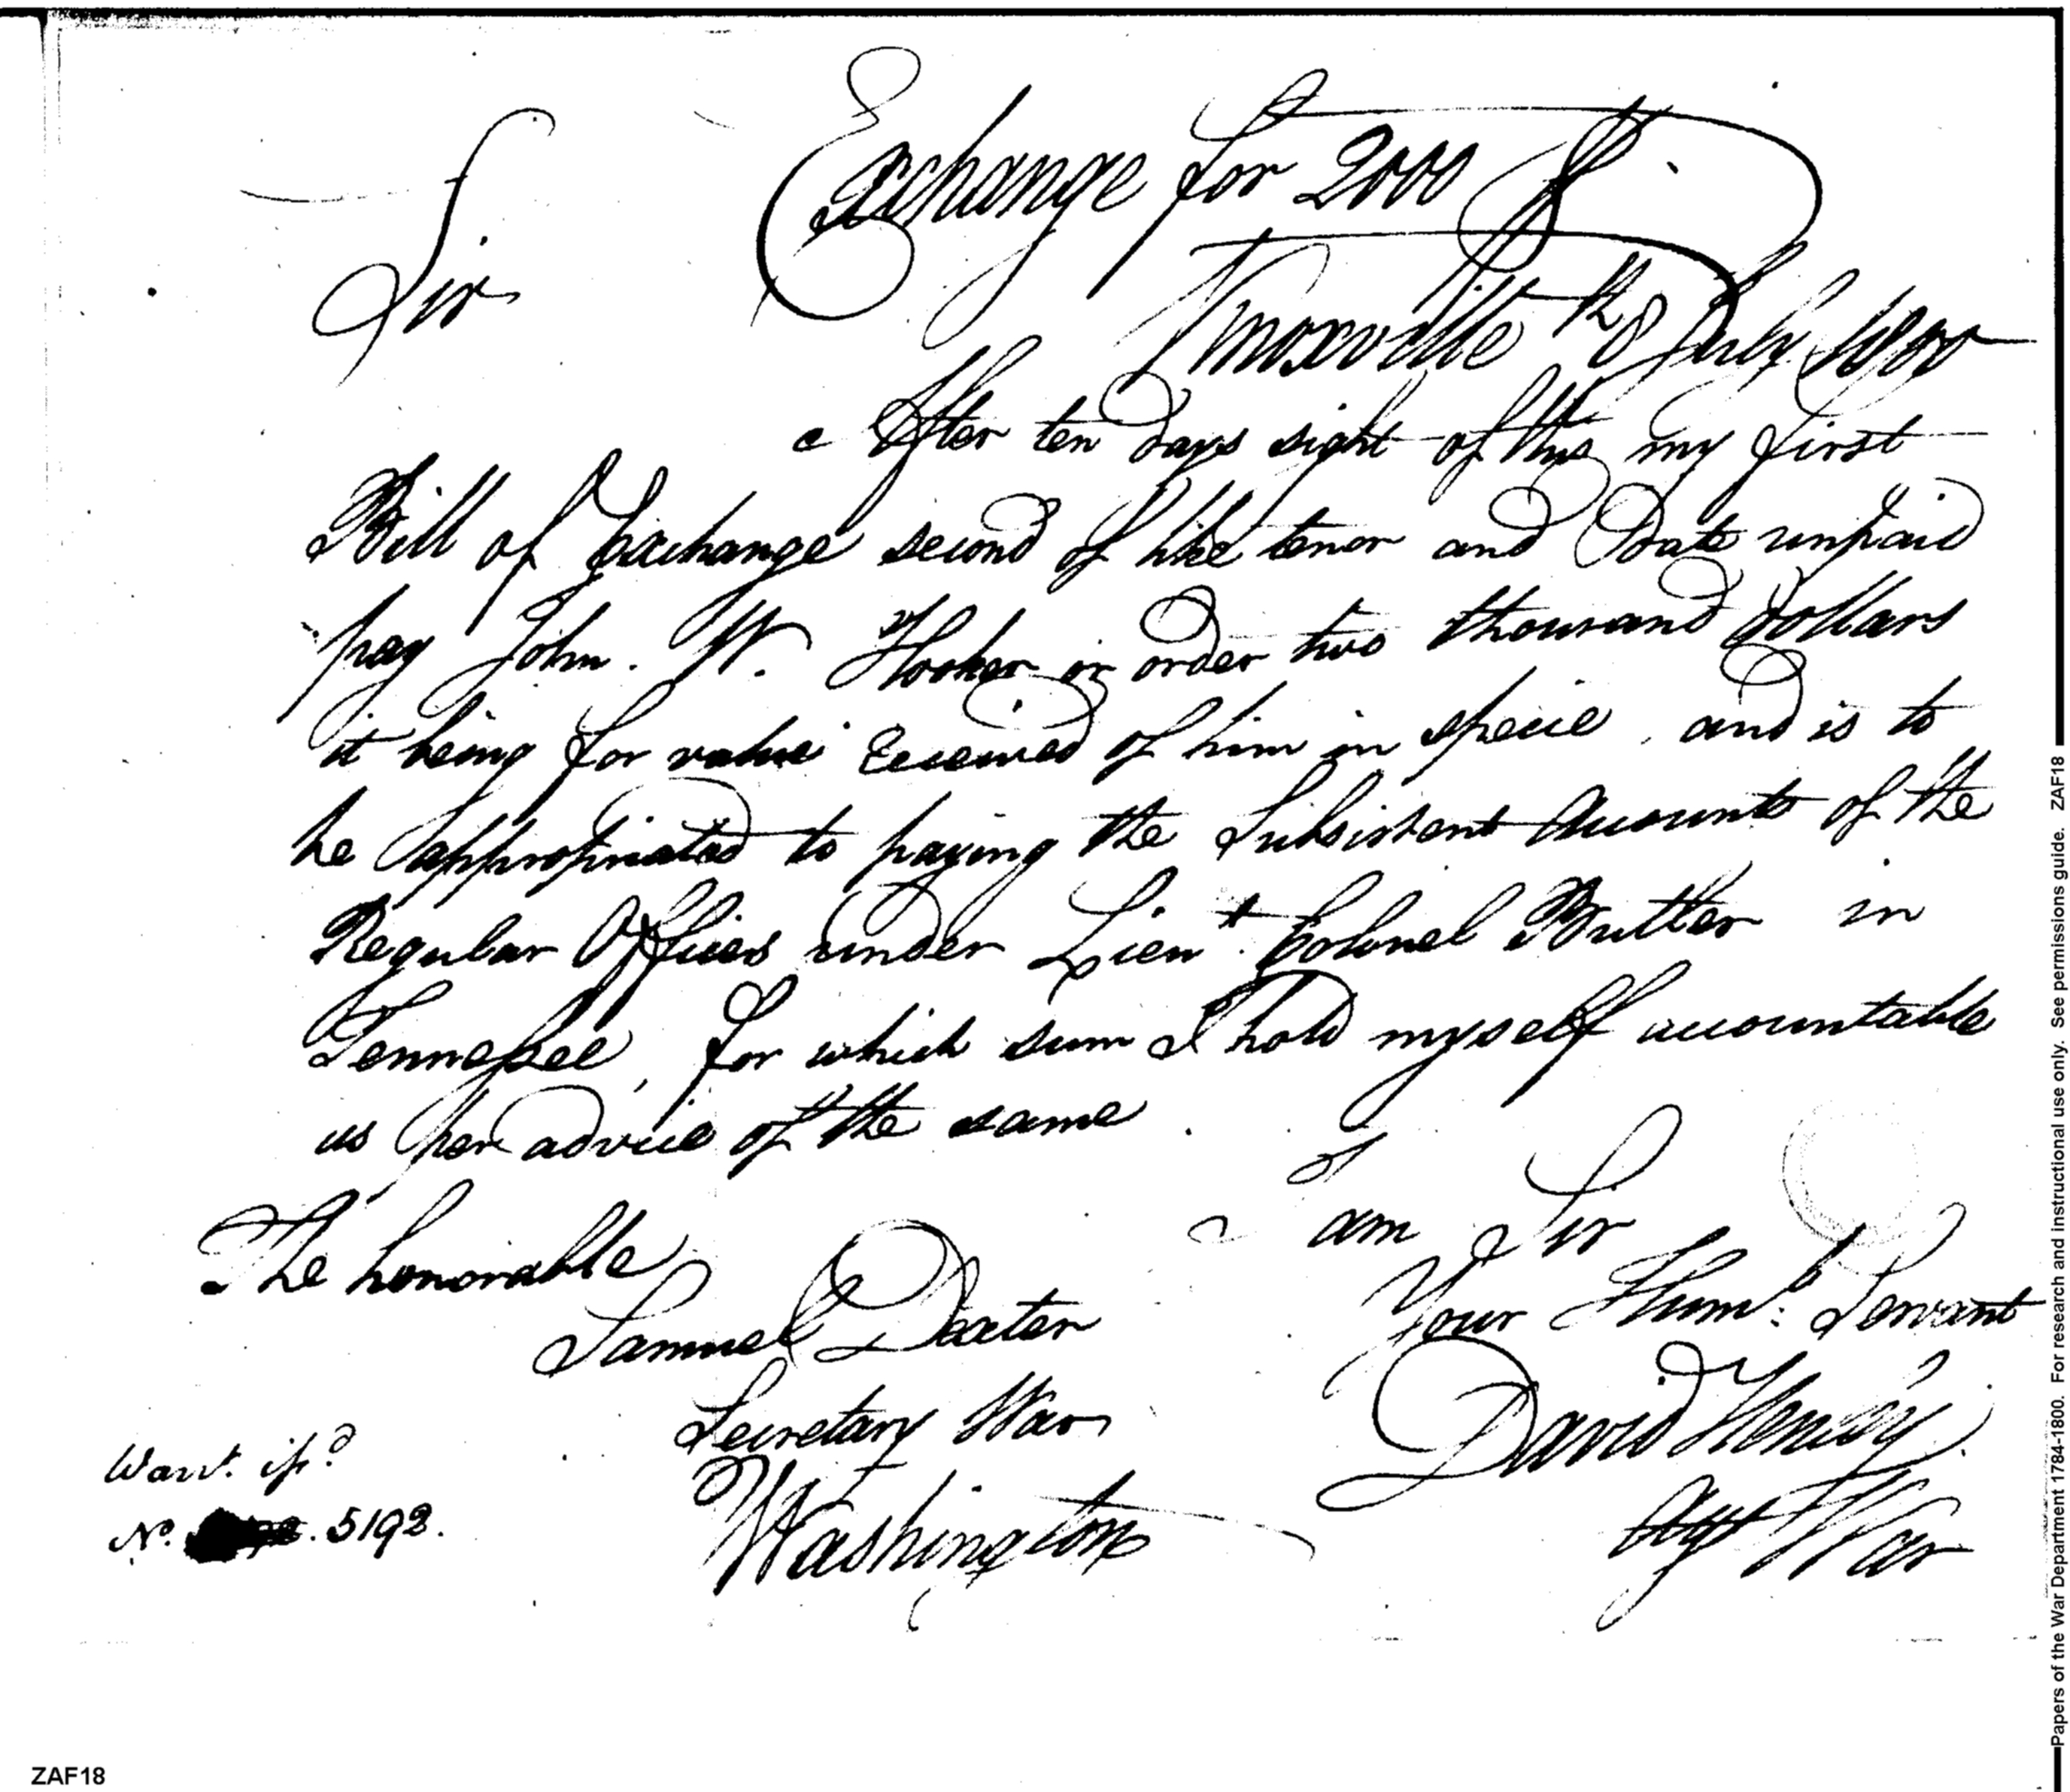 Exchange for 2000 $
Sir
Knoxville 8 July 1800
After ten days sight of this my first
Bill of Exchange second of like tenor and Date unpaid
pay John. W. Hooker or order two thousand Dollars
it being for value Received of him in specie, and is to
be appropriated to paying the Subsistent Accounts of the
Regular Officers under Lieut. Colonel Butler in
Tennessee, for which sum I hold myself accountable
as per advice of the same.
I am Sir
Your Humb: Servant
David Henley
Agt War
The honorable
Samuel Dexter
Secretary War
Washington
Warrt. isd
No. 5192.
Papers of the War Department 1784-1800. For research and instructional use only. See permissions guide. ZAF18
ZAF18